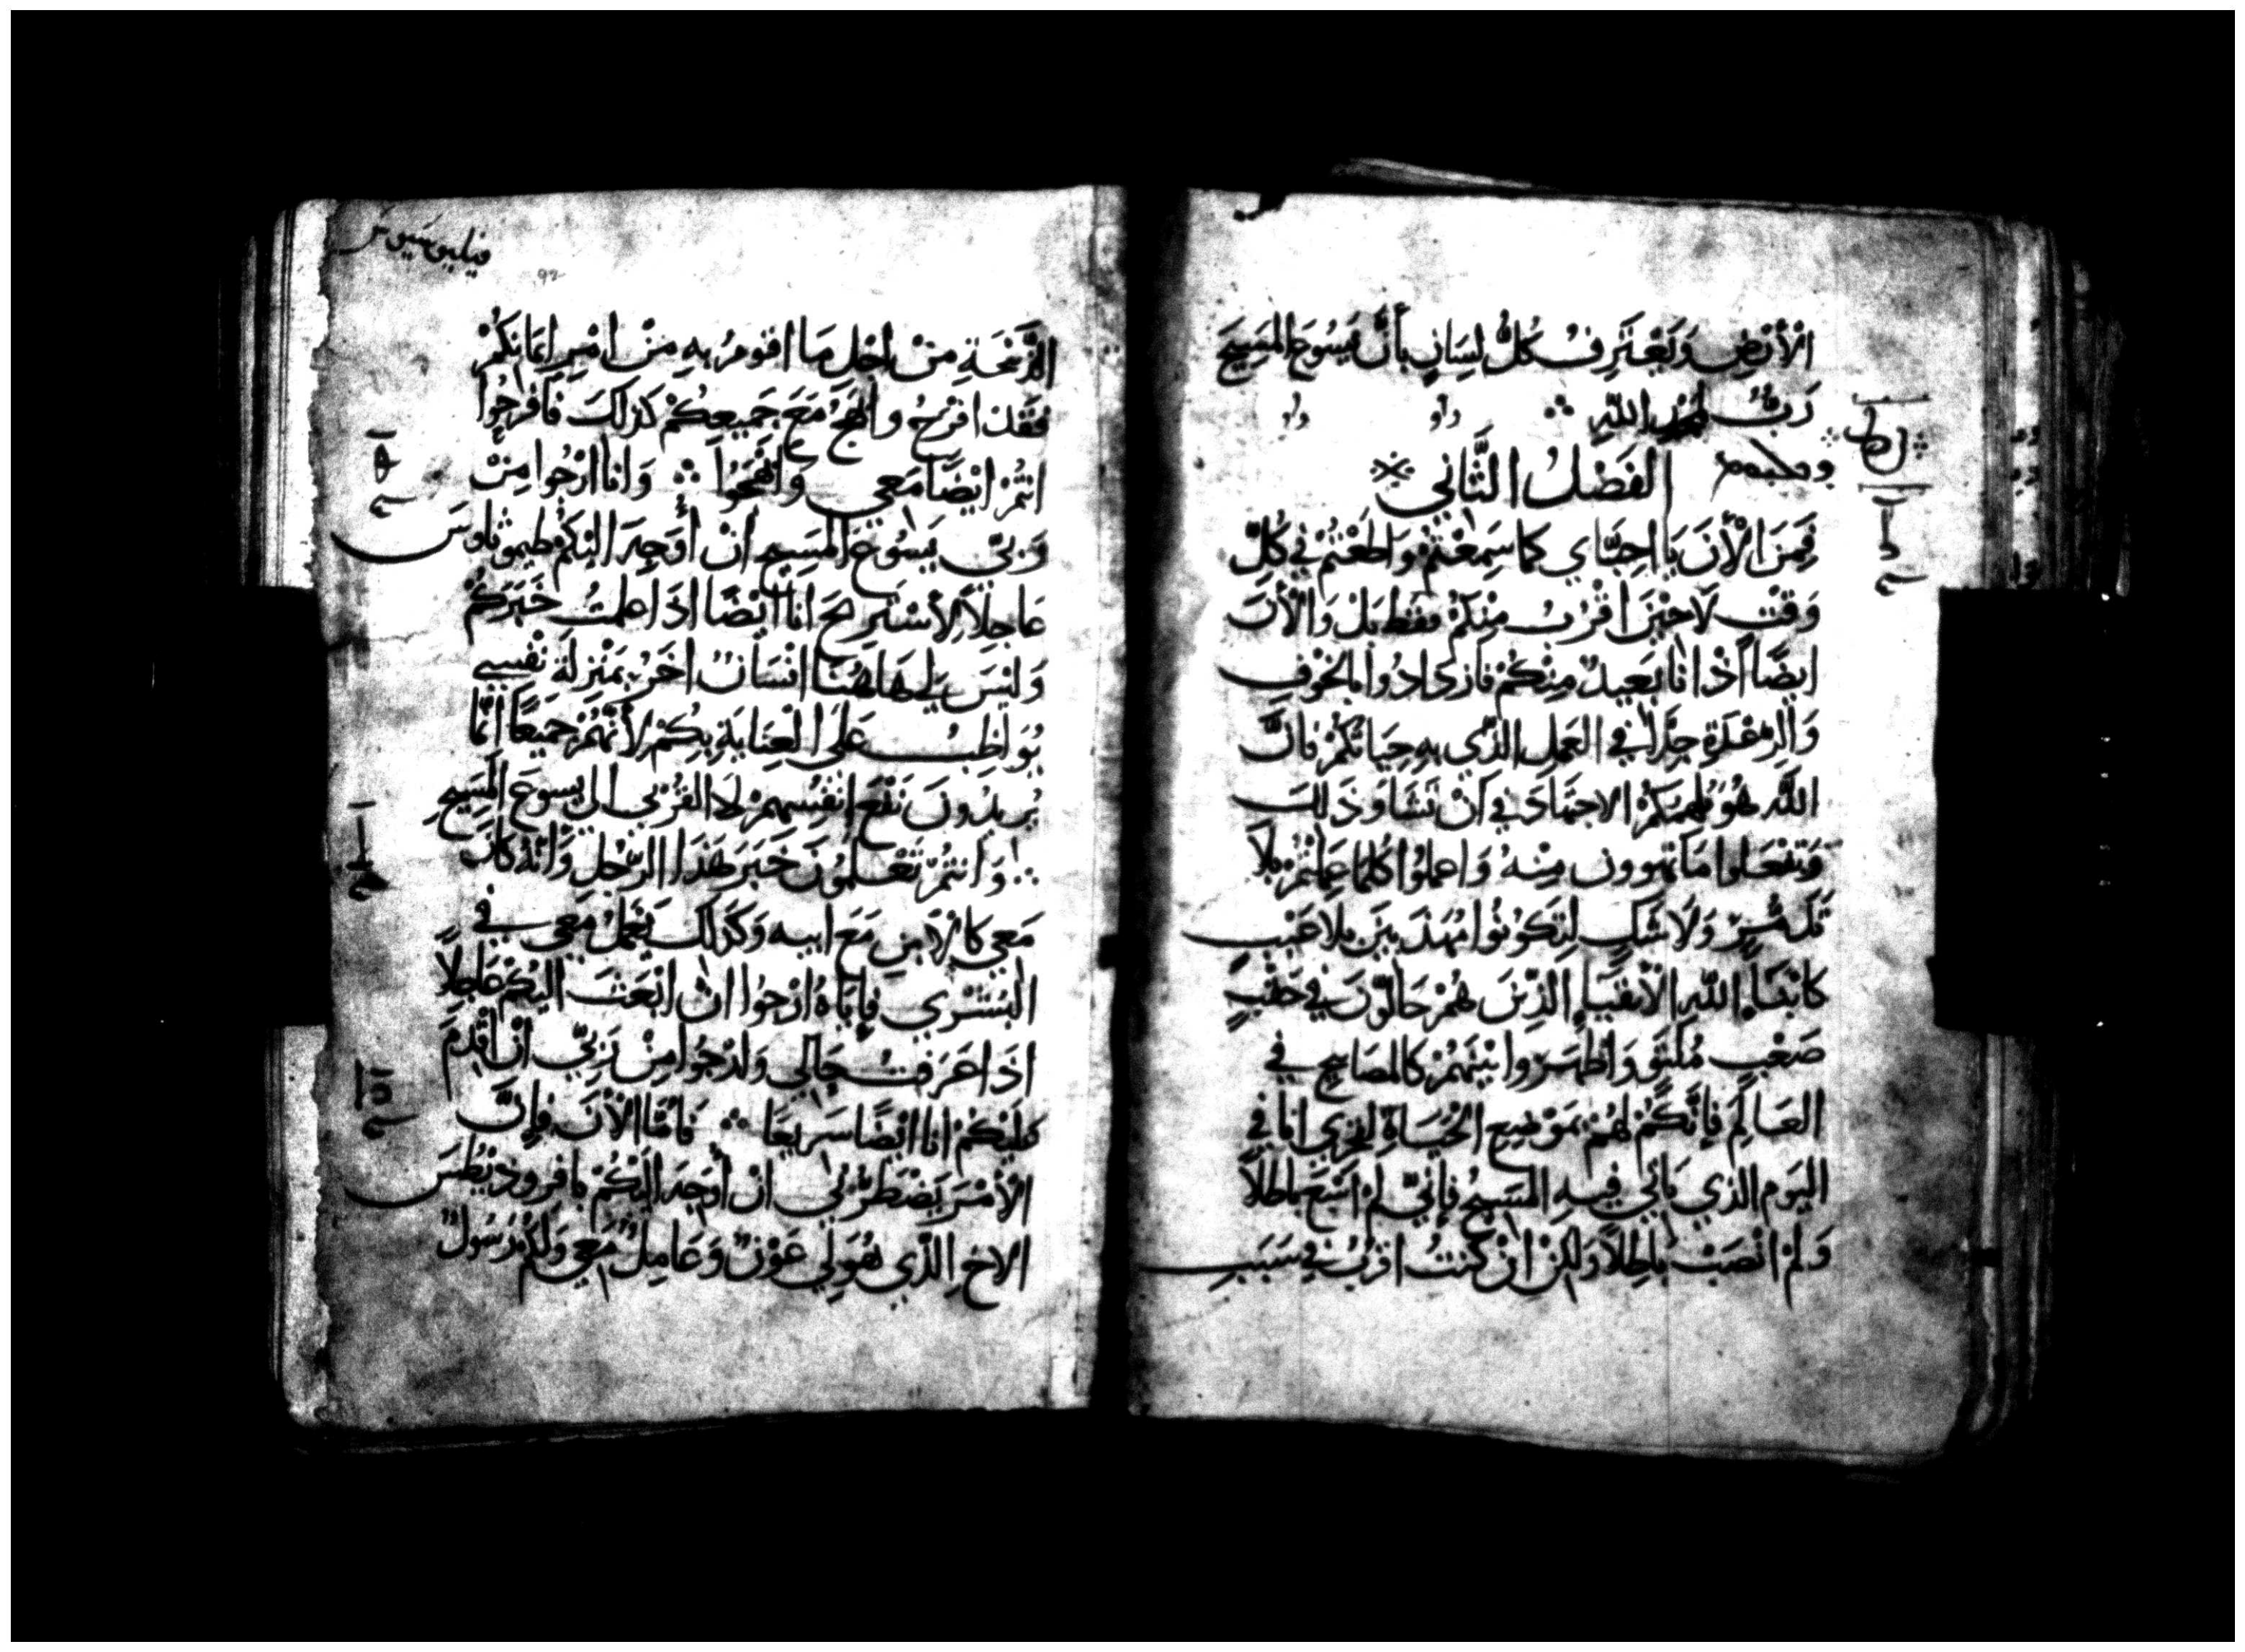 الْأَرْضِ وَيَعْتَرِفُ كُلُّ لِسَانٍ بِأَنَّ يَسُوعَ الْمَسِيحَ
رَبٌّ لِمَجْدِ اللَّهِ
الفَصْلُ الثَّانِي
فَمِنَ الْأَنَ يَا احِبَّاي كما سَمِعْتُمْ وَاطَعْتُمْ فِي كُلِّ
وَقْتٍ لَا حِيْنَ اقْرُبُ مِنْكُمْ فقط بَلْ وَالْأَنَ
ايضًا اذْ انا بَعِيدٌ مِنْكُمْ فازدادُوا بالخَوْفِ
وَالرِّعْدَةِ جِدًّا فِي العَمَلِ الذَّي بِهِ حَيَاتُكُمْ فانَّ
اللَّه هُوَ يُلهِمَكُمُ الاجتِهَادَ فِي انْ تَشَاوُ ذَلِكَ
وَتَفْعَلوا مَا تهوون مِنْهُ وَاعملُوا كلمَّا عَمِلْتُمْ بِلَا
تَذَمُّرٍ وَلَا شَكٍ لِتَكُونُوا مُهَذَبِيْنَ بِلا عَيْبٍ
كابْنَاءِ اللَّهِ الْأنْقِيَاءِ الذِّينَ هُمْ حَالُّونَ فِي حِقْبٍ
صَعْبٍ مُلْتَوٍ وَاظْهَرُوا بَيْنَهُمْ كالمَصَابِيحِ فِي
العَالَمِ فَإِنَّكُمْ لَهُمْ بِمَوْضِعِ الْحَيَاةِ لِفَخْرِي انا فِي
اليَوْمِ الذي يَاتِي فِيهِ المَسِيحُ فَإِنِّي لَمْ اسْعَ بَاطلًا
وَلَمْ انْصَبْ بَاطِلًا وَلَكِنْ انْ كُنْتُ اقَرَّبُ فِي سَبَبِ
فيليبوسيوس
92
الذَّبِيحَةِ مِنْ اجْلِ مَا اقوْمُ بِهِ مِنْ امْرِ ايمَانِكُمْ
فَقَدْ افْرَحُ وابْهَجُ مَعَ جَمِيعِكُمْ كَذلِكَ فَافْرَحُوا
انْتُمْ ايْضًا مَعِي وَابْهَجُوا وَانَا ارْجُوا مِنْ
رَبِّي يَسُوعَ الْمَسِيحِ انْ أُوَجِهَ الَيْكُمْ طِيموثاوسَ
عَاجِلًا لِأَسْتَرِيحَ انا ايْضًا اذَا علمتُ خَبَرَكُمْ
وَلَيْسَ لِي هَاهُنَا انْسَانٌ اخَرُ بِمَنْزِلَةِ نَفْسِي
يُوَاظِبُ عَلَى الْعِنَايَةِ بِكُمْ لأَنَّهُمْ جَمِيعًا انّمَا
يُرِيدُونَ نَفْعَ انْفُسِهِمْ لا القُرْبَي الى يسوعَ الْمَسِيحِ
وَانْتُمْ تَعْلَمُونَ خَبَرَ هَذَا الرَّجُلِ وَانَّهُ كَانَ
مَعِي كالابْنِ مَعَ ابيه وَكَذَلكَ يَعْمَلُ مَعِي فِي
الْبُشْرَي فَإِيَّاهُ ارْجُوا انْ ابْعَثَ الَيْكُمْ عَاجِلًا
اذَا عَرَفْتُ حَالِي وَارْجُوا مِنْ رَبِّي انْ اقْدِمَ
عَلَيْكُمْ انا ايْضًا سَرِيعًا فَامَّا الْأَنَ فَإِنَّ
الْأَمْرَ يَضْطَرُّنِي انْ أُوَجِهَ الَيْكُمْ بافرودِيْطُسَ
الاخِ الذَّي هُوَ لِي عَوْنٌ وَعَامِلٌ مَعِي وَلَكُمْ رَسُولٌ